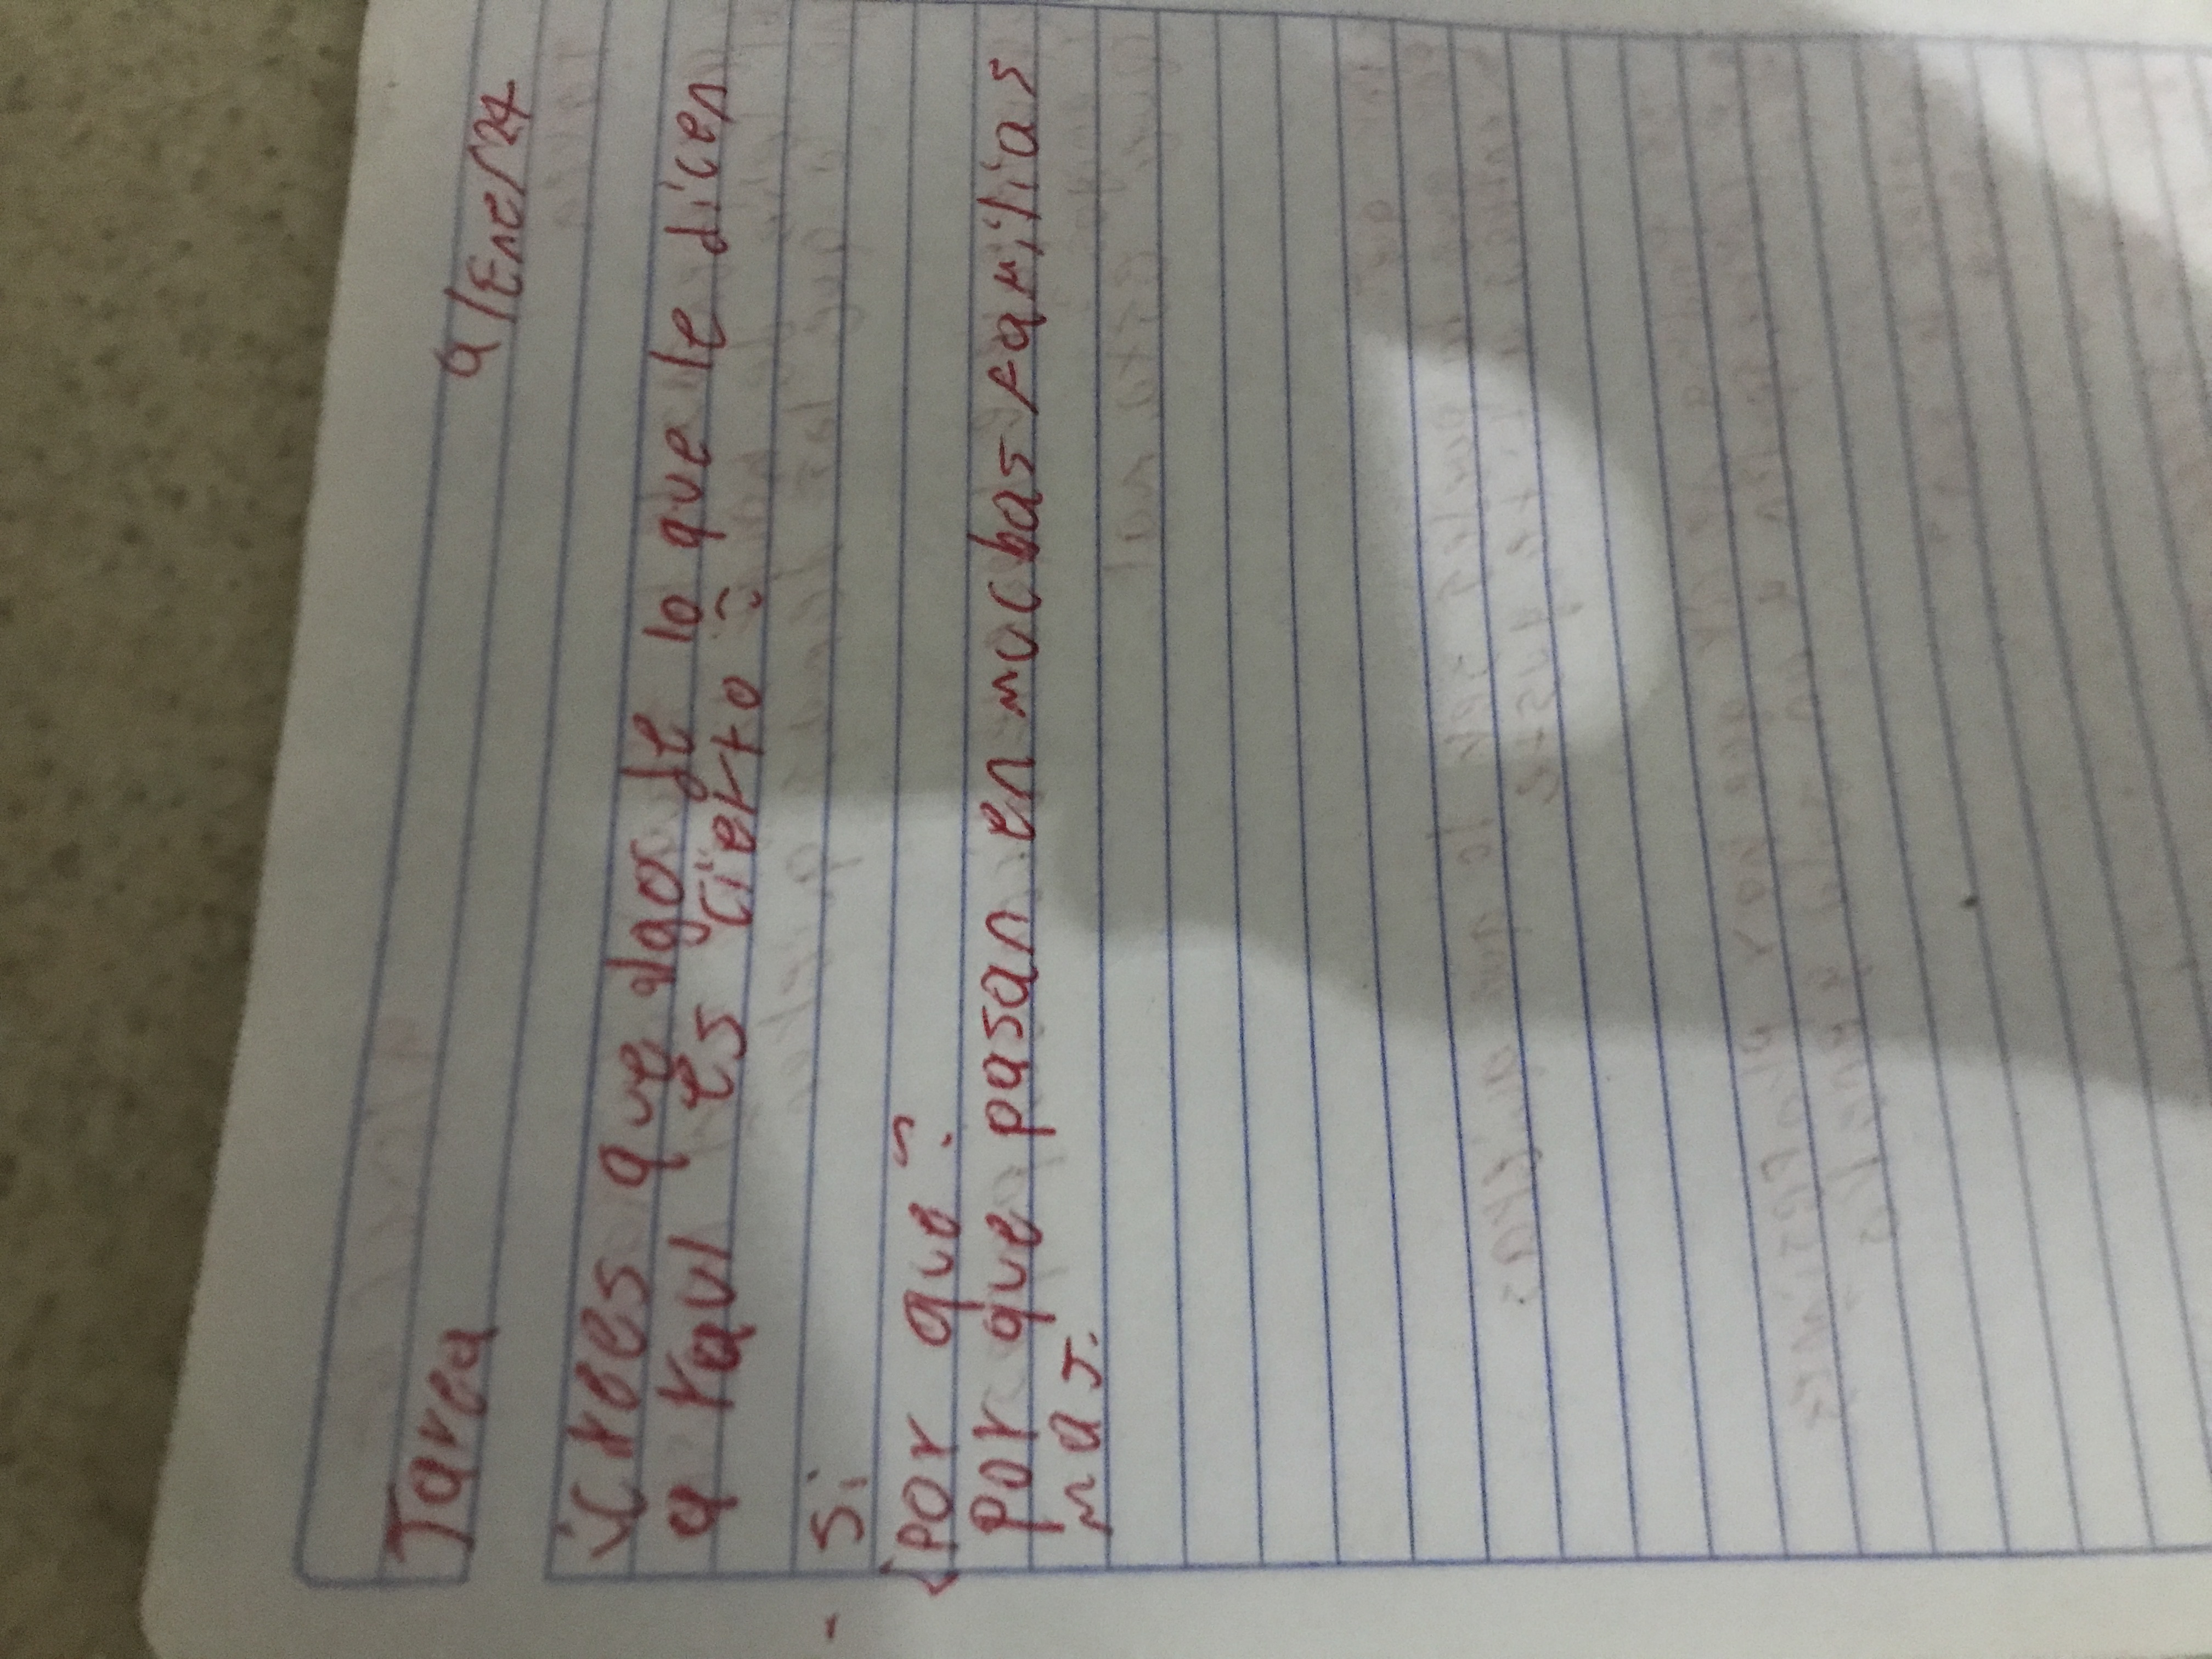 Tarea 9/Ene/24
¿Crees que algo de lo que le dicen
a raul es cierto?
- Si
¿Por qué?
Por que pasan en muchas familias
mas.